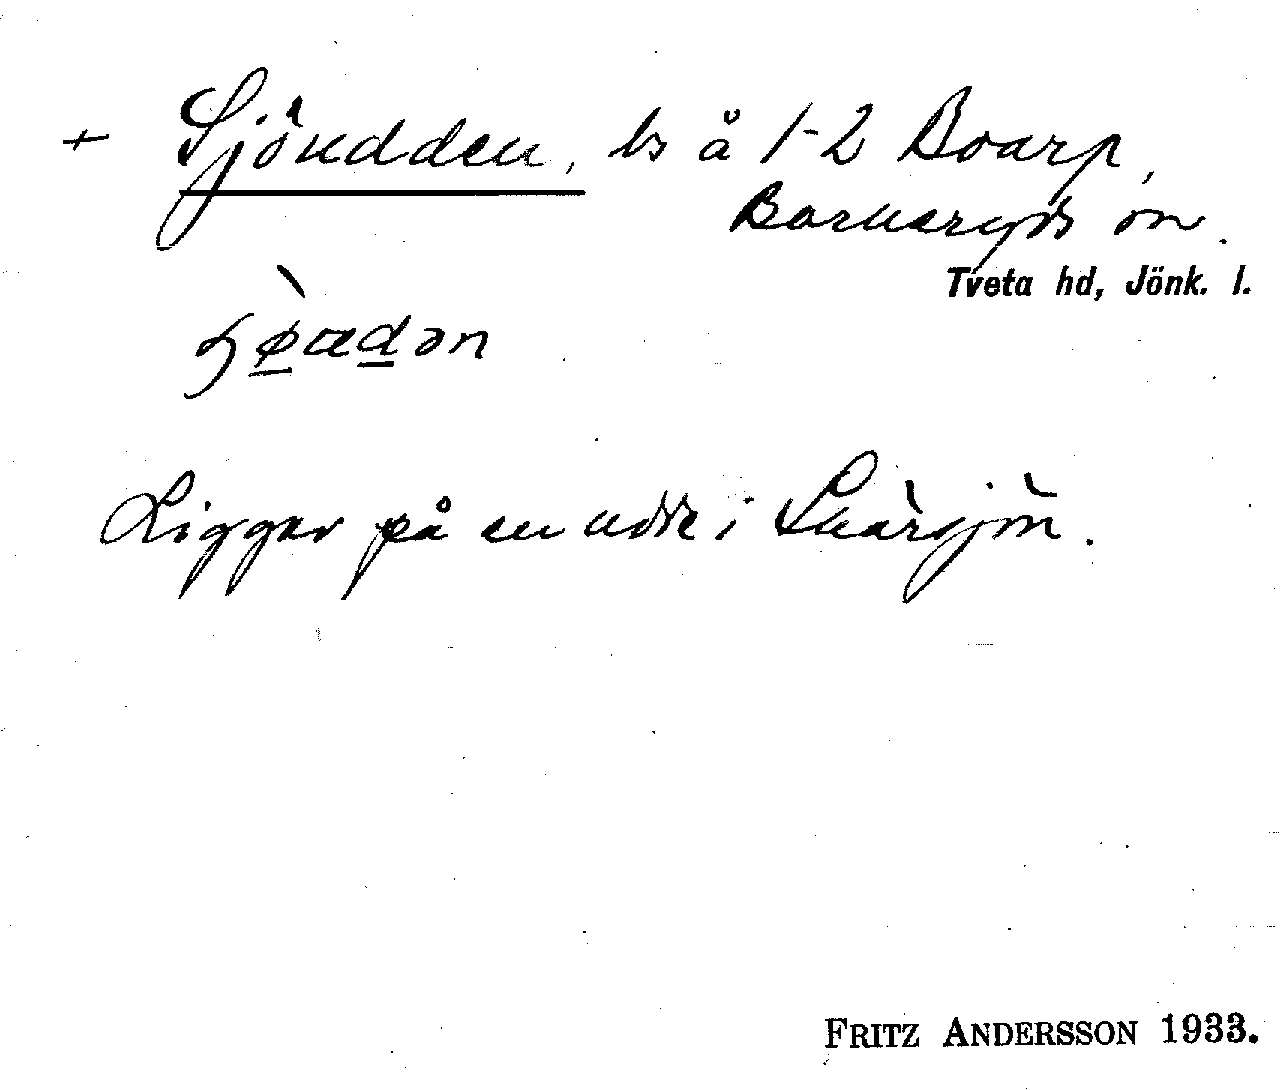 + Sjöudden, ls å 1-2 Boarp,
Barkeryds sn.
Tveta hd, Jönk. l.
Ligger på en udde i
FRITZ ANDERSSON 1933.